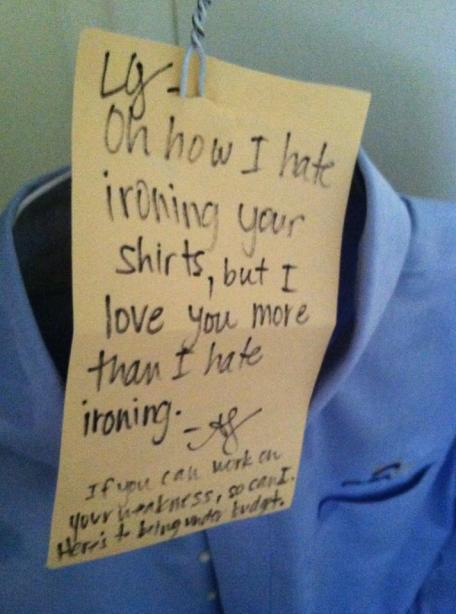 LG -
Oh how I hate
ironing your
shirts, but I
love you more
than I hate
ironing.
-AG
If you can work on
your weakness, so can I.
Here's to being under budget.